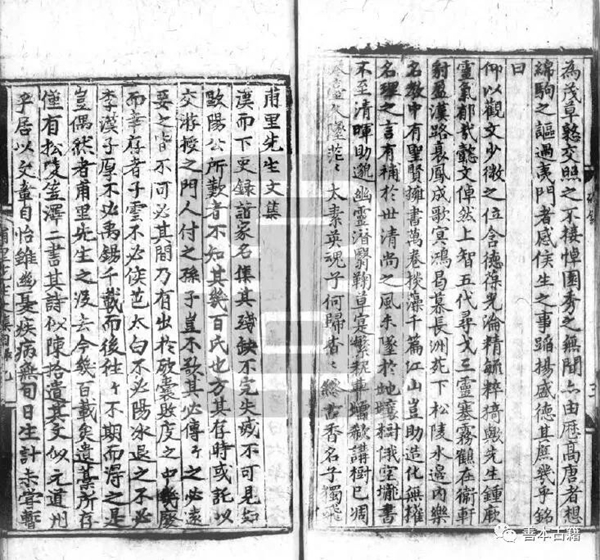 為茂草慭交照之不棲悼園秀之無聞亦由歴高唐者想
綿駒之謳過夷門者感侯生之事蹈揚盛德其庶幾乎銘
曰
仰以觀文少微之位含德葆光淪精毓粹猗歟先生鍾厥
靈氣郁哉懿文倬然上智五代尋戈三靈塞霧鶴在衛軒
豺盈漢路襄鳳成歌冥鴻曷慕長洲苑下松陵水邊内樂
名教中有聖賢擁書萬卷掞藻千篇江山豈助造化無權
名理之言有補於世清尚之風未墜於地壞樹俄空攏書
不至清暉助邈幽靈潛翳鞠草寔繁粃華壙欷講樹已凋
太素英魂子何歸杳々總書香名子獨飛
甫里先生文集
漢而下史録訪家名集其殘缺不完失或不可見如
歐陽公所歎者不知其幾百氏也方其存時或託以
交游授之門人付之孫子豈不欲其必傳々之必遠
要之皆不可必其間乃有出於破囊敗度之中幾廢
而華存者子雲不必侯芭太白不必陽冰退之不必
李漢子厚不必禹錫千載而後往々不期而得之是
豈偶然者甫里先生之没去今幾百載矣遺藁所存
僅有松陵笠澤二書其詩似陳拾遺其文似元道州
平居以文章自怡雖幽憂疾病無旬日生計未嘗暫
善本古籍